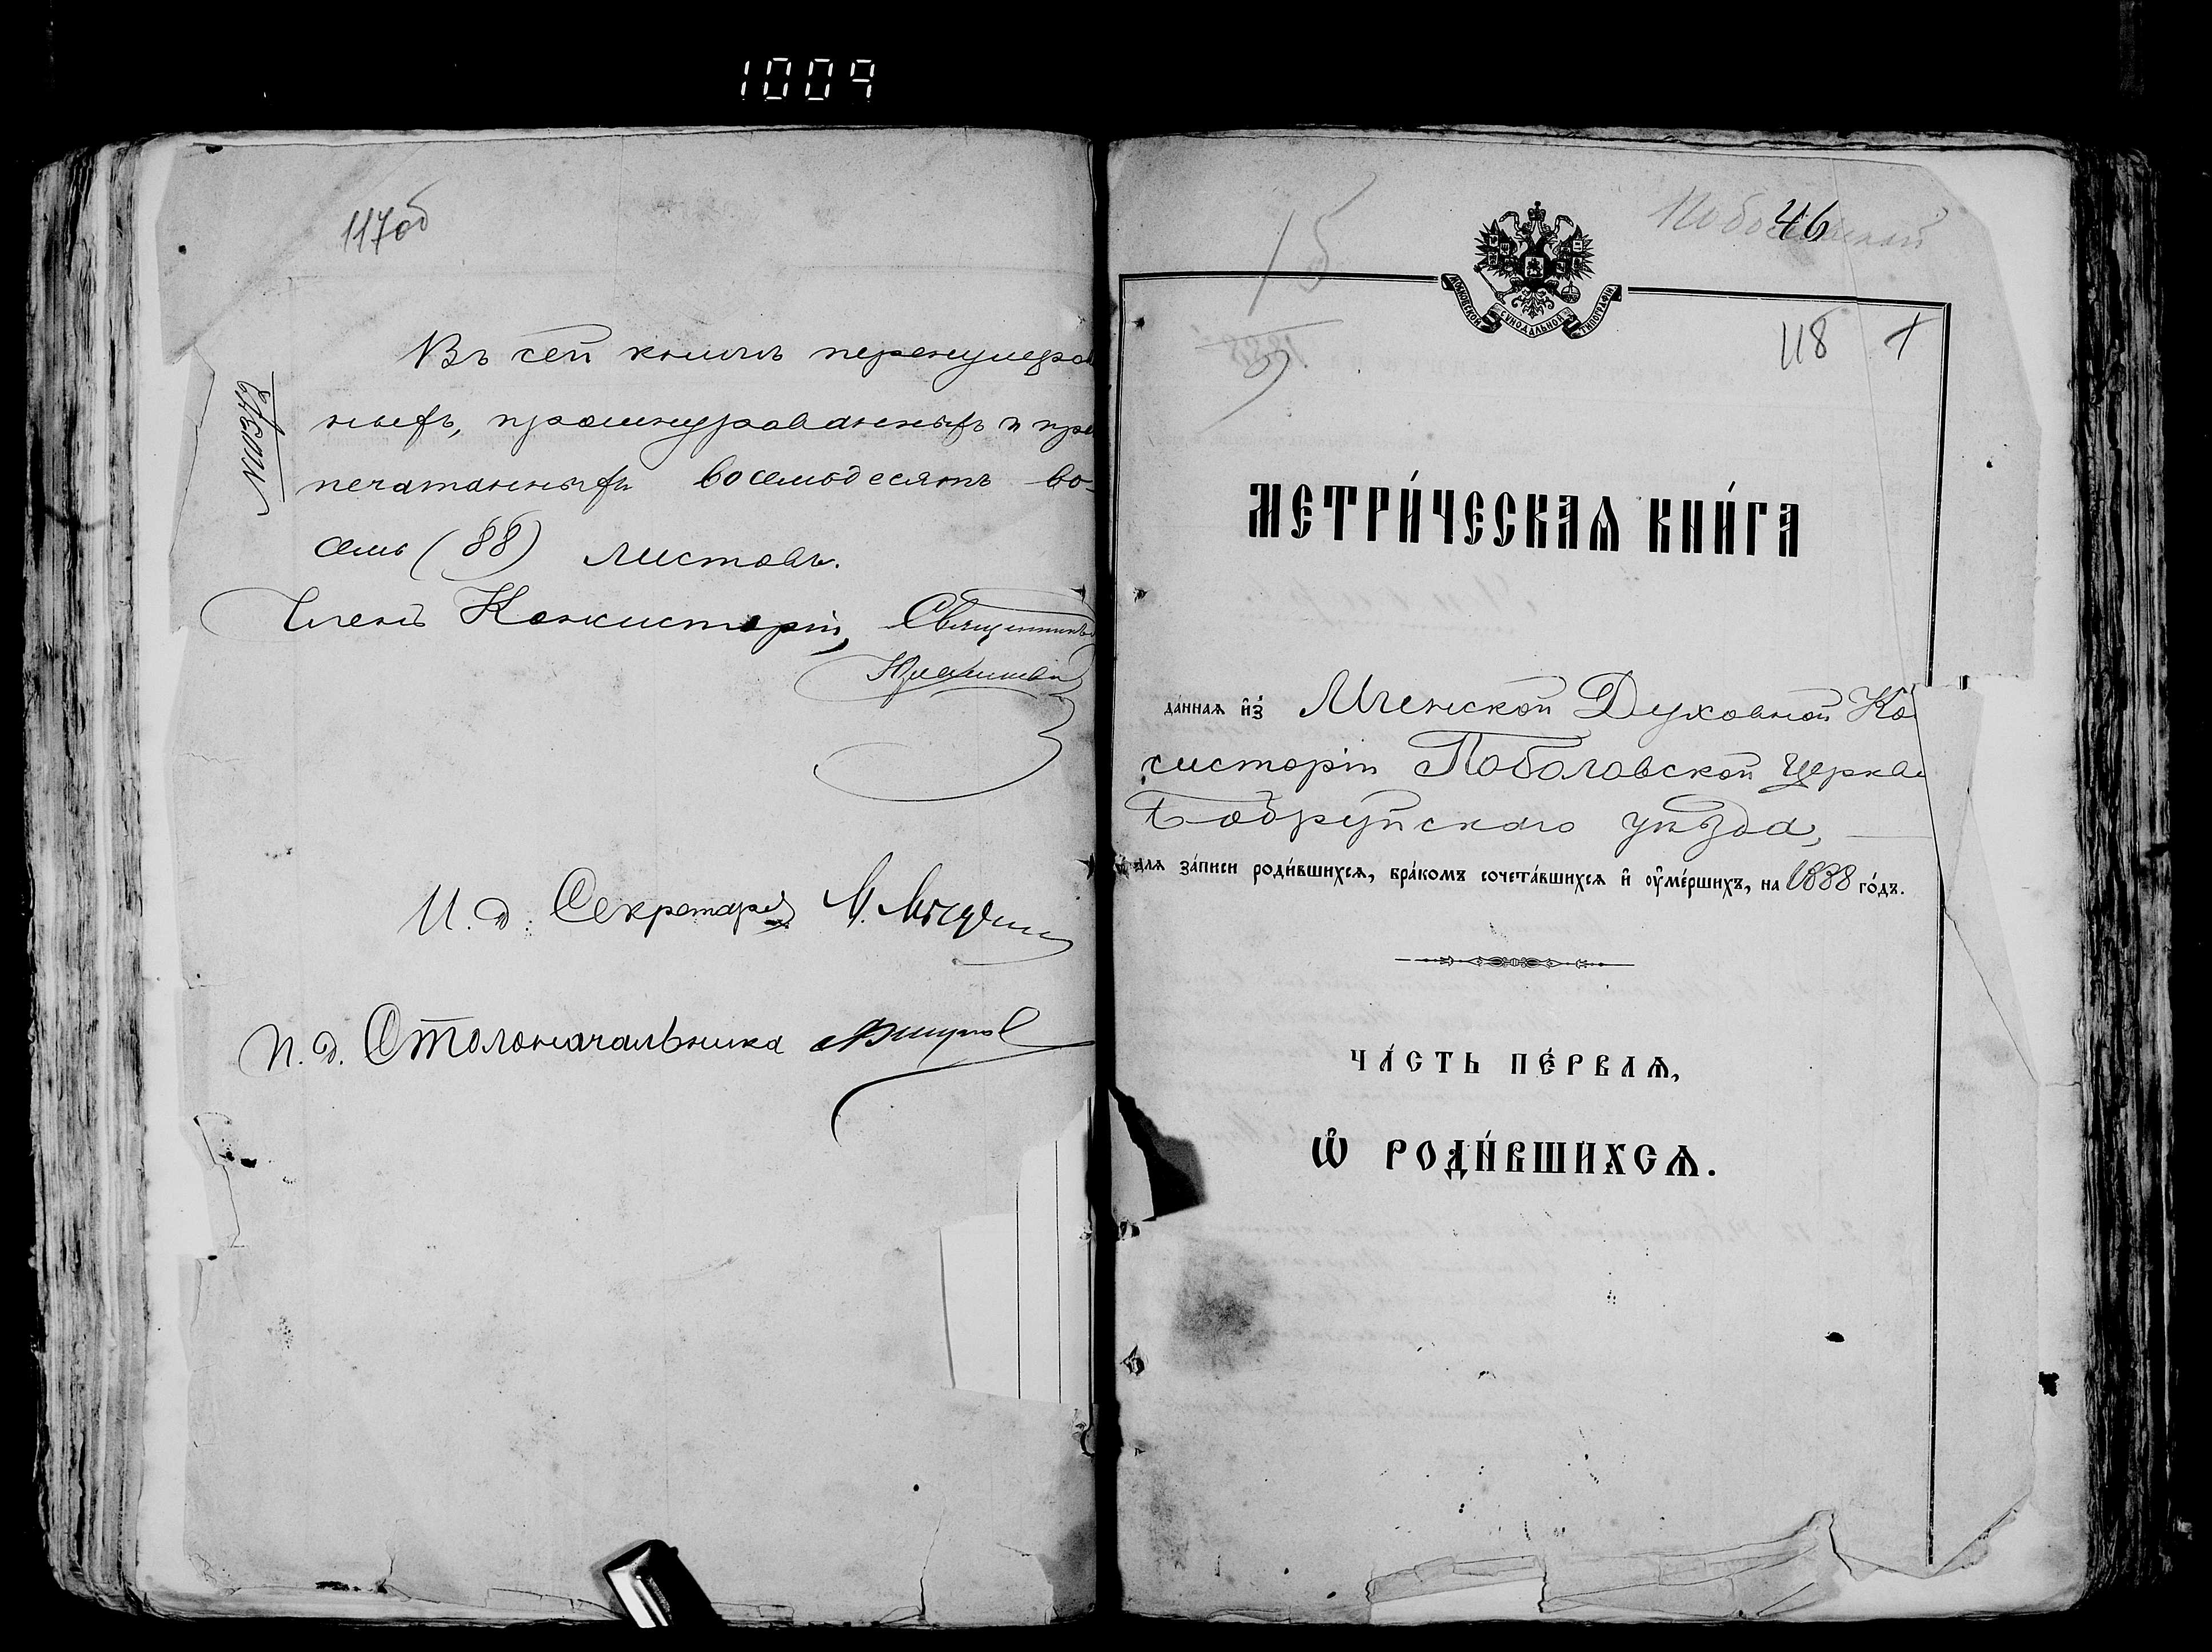 1009
117об
Въ сей книгѣ перенумеро
ныхъ, прошнурованныхъ и про
печатанныхъ восемьдесятъ во-
семь (88) листовъ.
Членъ Консисторіи, Священникъ
И. д. Секретаря
И. д. Столоначальника
15
46
МОСКОВСКОЙ СѴНОДАЛЬНОЙ ТИПОГРАФІИ
118 1
МЕТРИ́ЧЕСКАѦ КНИ́ГА
да́ннаѧ и҆зъ Минской Духовной Ко
систоріи Поболовской церкви
Бобруйскаго уѣзда,
для за́писи роди́вшихсѧ, бра́комъ сочета́вшихсѧ и҆ ᲂу҆ме́ршихъ, на 1888 го́дъ.
ЧА́СТЬ ПЕ́РВАѦ,
Ѽ РОДИ́ВШИХСѦ.